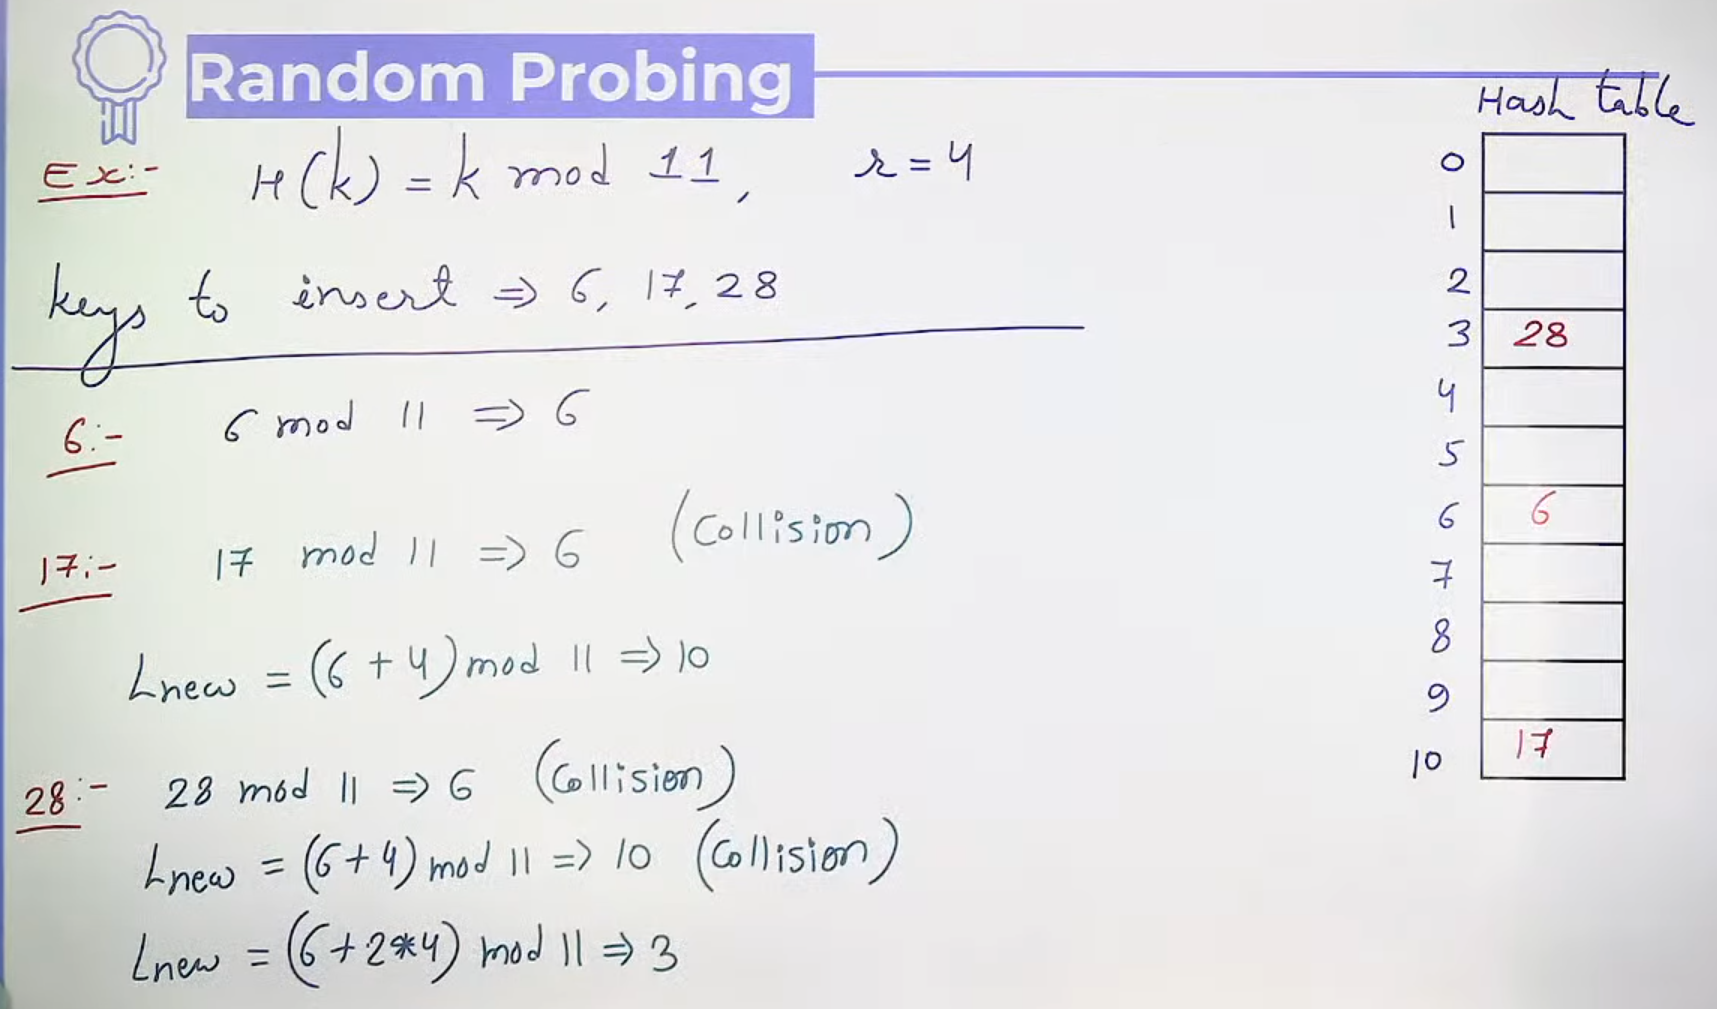 Random Probing
Ex:- H(k) = k mod 11, r = 4
keys to insert ⇒ 6, 17, 28
6:- 6 mod 11 ⇒ 6
17:- 17 mod 11 ⇒ 6 (Collision)
Lnew = (6 + 4) mod 11 ⇒ 10
28:- 28 mod 11 ⇒ 6 (Collision)
Lnew = (6+4) mod 11 => 10 (Collision)
Lnew = (6+2*4) mod 11 ⇒ 3
Hash table
0
1
2
3 28
4
5
6 6
7
8
9
10 17